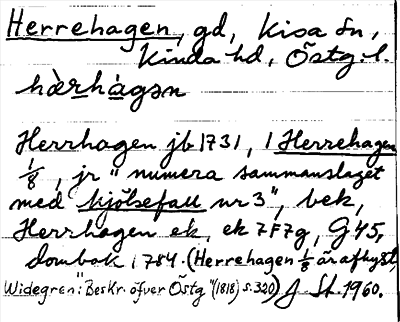 Herrehagen, gd, Kisa sn,
Kinda hd, Östg. l.
hæ̀rhàgən
Herrhagen jb 1731, 1 Herrehagen
1/8, jr "numera sammanslaget
med Kjölsefall nr 3", bek,
Herrhagen ek, ek 7F7g, G 45,
dombok 1784. (Herrehagen 1/8 är afhyst,
Widegren: "Beskr. öfver Östg." (1818) s. 320) J. St. 1960.